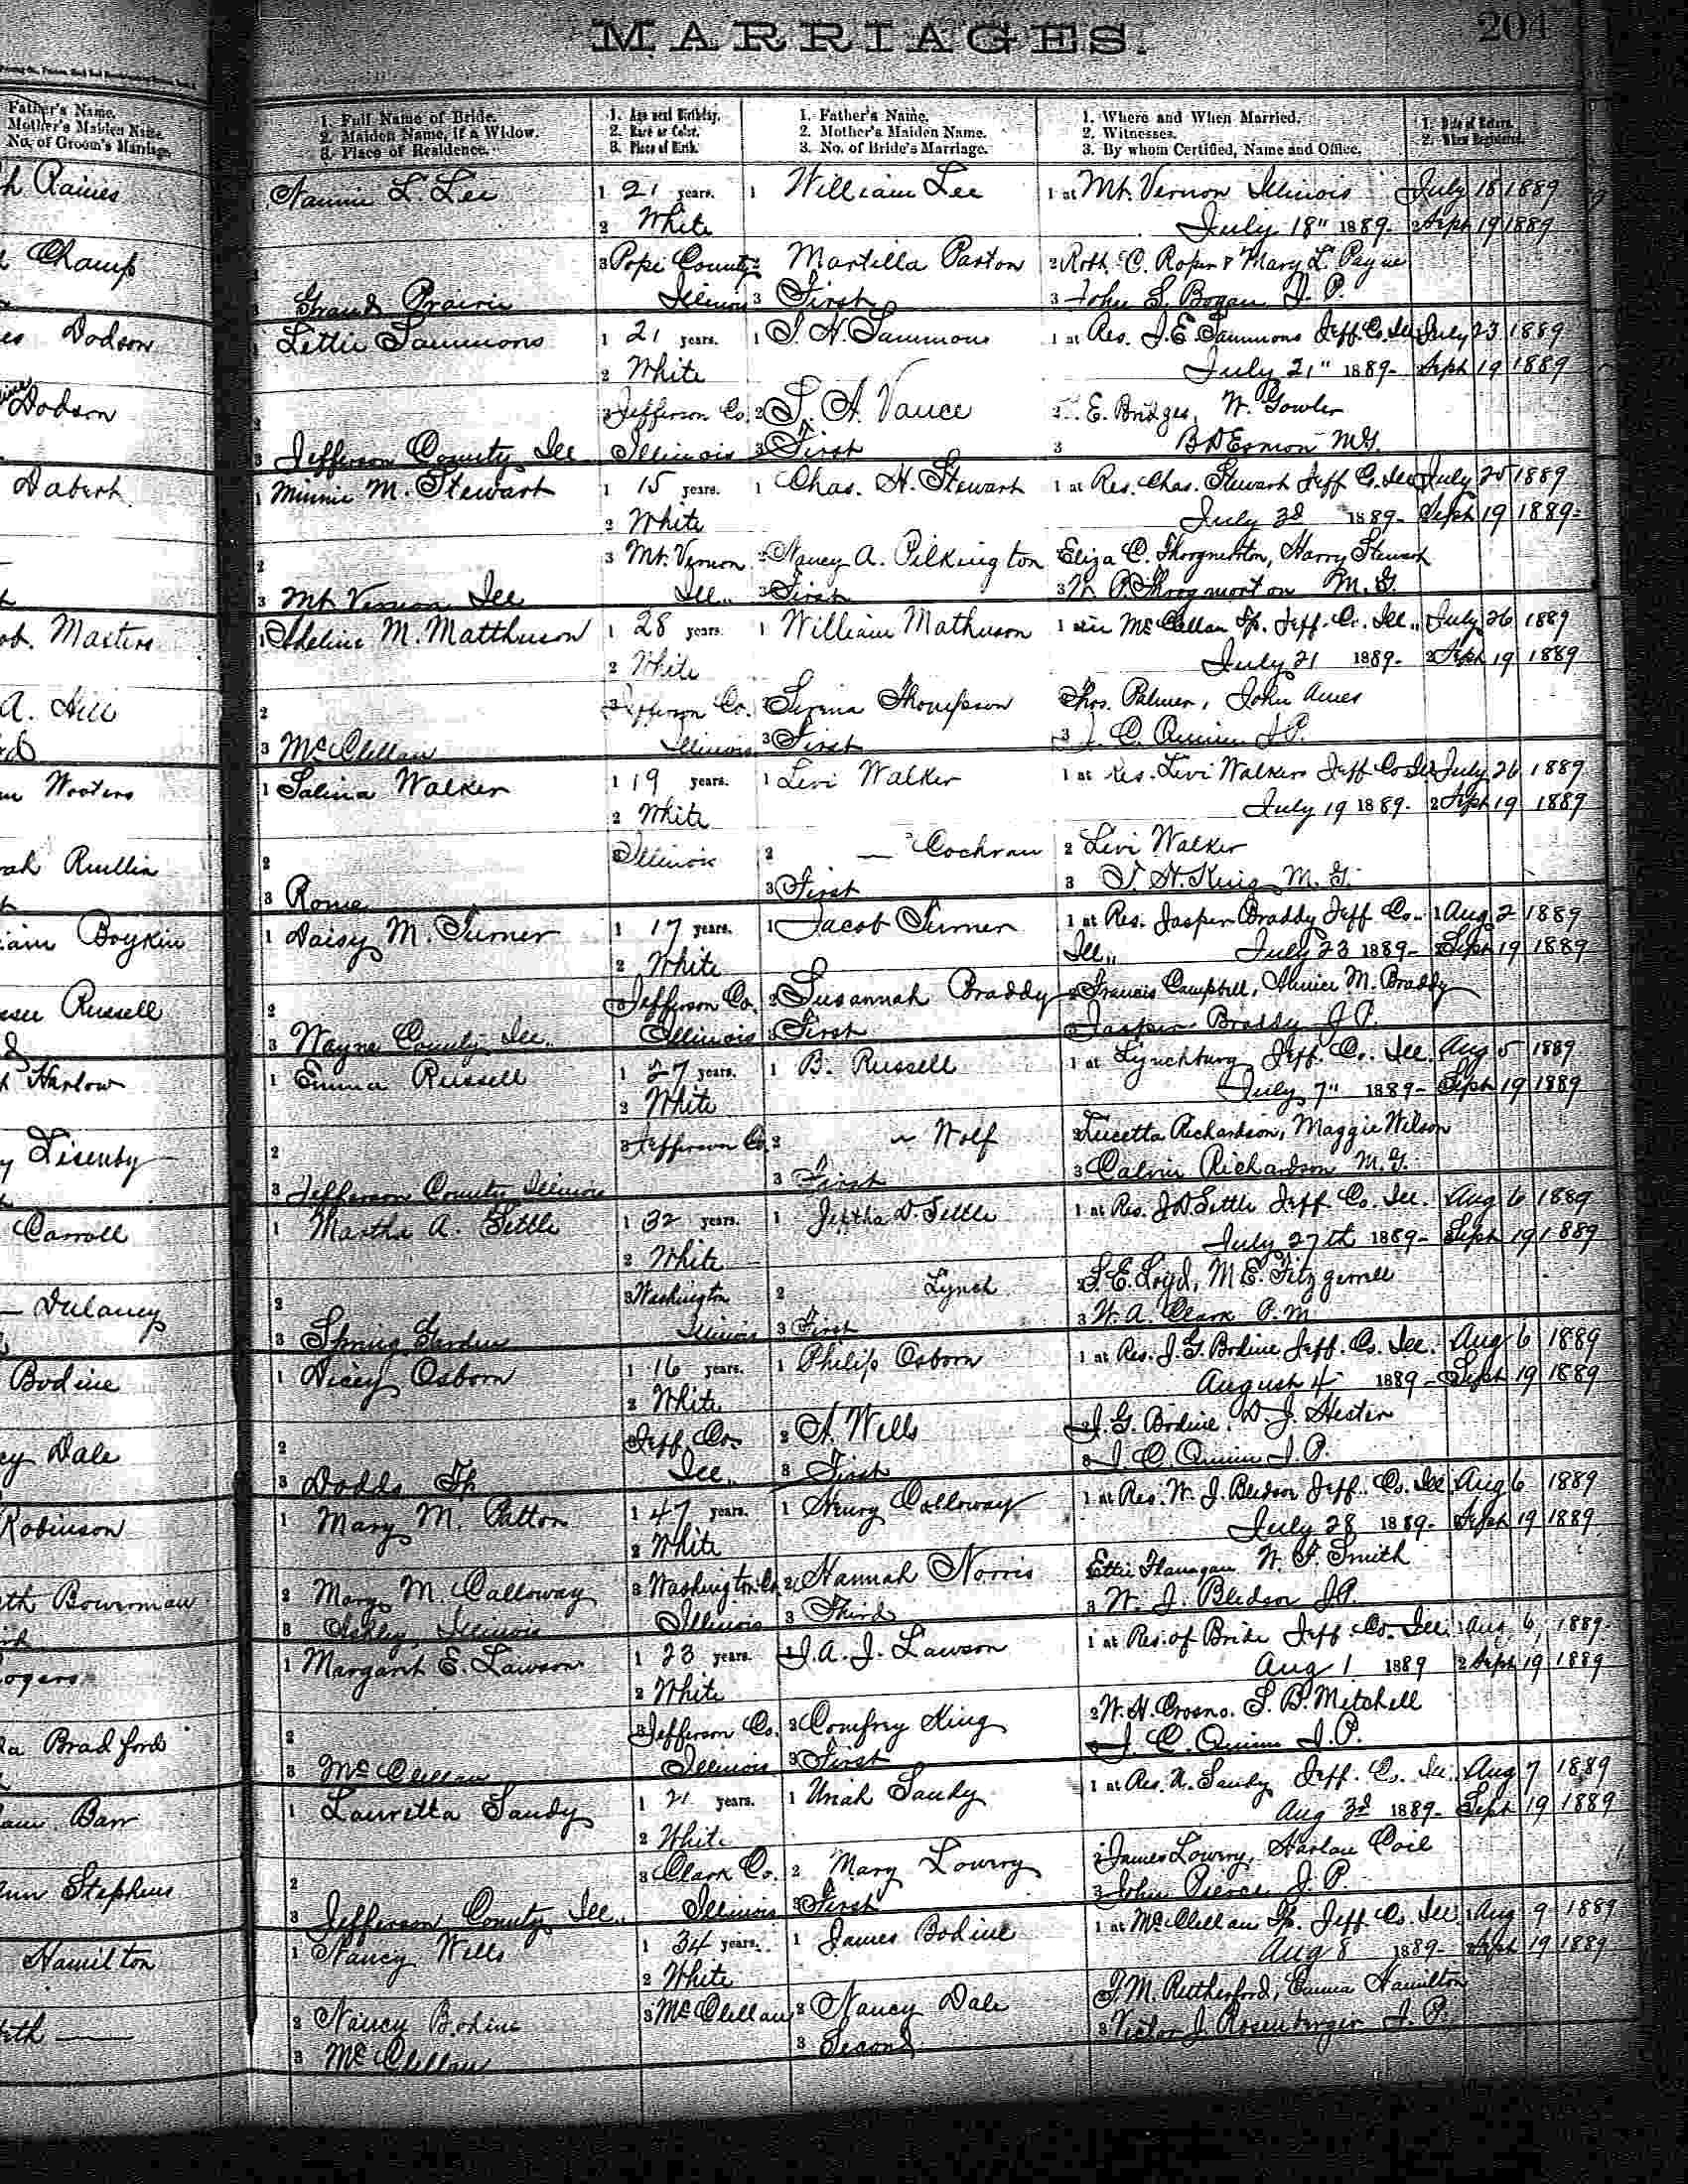 MARRIAGES.
204
Father's Name.
Mother's Maiden Name.
No. of Groom's Marriage.
1. Full Name of Bride.
2. Maiden Name, if a Widow.
3. Place of Residence.
1. Age next Birthday.
2. Race or Color.
3. Place of Birth.
1. Father's Name.
2. Mother's Maiden Name.
3. No. of Bride's Marriage.
1. Where and When Married.
2. Witnesses.
3. By whom Certified, Name and Office.
1. Date of Return.
2. When Registered.
h Raines
Champ
1 Nannie L. Lee
2
3 Grand Prairie
1 21 years.
2 White
3 Pope County
Illinois
1 William Lee
2 Martilla Paxton
3 First
1 at Mt. Vernon Illinois
July 18" 1889-
2 Roth. C. Roper & Mary L. Payne
3 John S. Bogan J. P.
July 18 1889
2 Sept 19 1889
es Dodson
Dodson
1 Lettie Sammons
2
3 Jefferson County Ill
1 21 years.
2 White
3 Jefferson Co.
Illinois
1 S. H. Sammons
2 S. A. Vance
3 First
1 at Res. J. E. Sammons Jeff. Co. Ill
July 21" 1889-
2 E. Bridges, W. Gowler
3 B D Esmon M.G.
July 23 1889
Sept 19 1889
Dabert
1 Minnie M. Stewart
2
3 Mt. Vernon Ill
1 15 years.
2 White
3 Mt. Vernon
Ill.
1 Chas. H. Stewart
2 Nancy A. Pilkington
3 First
1 at Res. Chas. Stewart Jeff Co. Ill
July 3d 1889-
Eliza C. Throgmorton, Harry Stewart
3 W. P. Throgmorton M. G.
July 25 1889
Sept 19 1889-
ob. Masters
A. Hill
1 Adeline M. Matthuson
2
3 McClellan
1 28 years.
2 White
3 Jefferson Co.
Illinois
1 William Mathuson
2 Sirena Thompson
3 First
1 at McClellan Tp. Jeff. Co. Ill.
July 21 1889-
Thos. Palmer, John Ames
3 J. C. Quinn J. P.
July 26 1889
2 Sept 19 1889
m Wooters
rah Rullin
1 Salina Walker
2
3 Rome
1 19 years.
2 White
3 Illinois
1 Levi Walker
2 — Cochran
3 First
1 at Res. Levi Walkers Jeff Co Ill
July 19 1889-
2 Levi Walker
3 T. H. King M. G.
July 26 1889
2 Sept 19 1889
iam Boykin
Russell
1 Daisy M. Turner
2
3 Wayne County Ill.
1 17 years.
2 White
3 Jefferson Co.
Illinois
1 Jacob Turner
2 Susannah Braddy
3 First
1 at Res. Jasper Braddy Jeff Co.
Ill. July 23 1889-
2 Francis Campbell, M. Braddy
3 Jasper Braddy J. P.
1 Aug 2 1889
2 Sept 19 1889
Harlow
y Lisenby
1 Emma Russell
2
3 Jefferson County Illinois
1 27 years.
2 White
3 Jefferson Co.
1 B. Russell
2 ~ Wolf
3 First
1 at Lynchburg Jeff. Co. Ill.
July 7" 1889-
2 Lucetta Richardson, Maggie Wilson
3 Calvin Richardson M. G.
Aug 5 1889
Sept 19 1889
Carroll
— Dulaney
1 Martha A. Settle
2
3 Spring Garden
1 32 years.
2 White
3 Washington
Illinois
1 Jeptha D. Settle
2 Lynch
3 First
1 at Res. J D Settle Jeff. Co. Ill.
July 27th 1889-
2 S. E. Loyd, M. E. Fitzgerrell
3 W. A. Clark P. M
Aug 6 1889
Sept 19 1889
Bodine
cy Dale
1 Dicey Osborn
2
3 Dodds Tp
1 16 years.
2 White
3 Jeff. Co.
Ill.
1 Philip Osborn
2 A. Wells
3 First
1 at Res. J. G. Bodine Jeff. Co. Ill.
August 4 1889-
2 J. G. Bodine, D. J. Hester
3 J. C. Quinn J. P.
Aug 6 1889
Sept 19 1889
Robinson
th Bowerman
1 Mary M. Patton
2 Mary M. Calloway
3 Ashley, Illinois
1 47 years.
2 White
3 Washington Co
Illinois
1 Henry Calloway
2 Hannah Norris
3 Third
1 at Res. W. J. Bledson Jeff. Co. Ill
July 28 1889-
Ettie Flanagan W. F. Smith
3 W. J. Bledson J.P.
Aug 6 1889
Sept 19 1889
ogers
la Bradford
1 Margaret E. Lawson
2
3 McClellan
1 23 years.
2 White
3 Jefferson Co.
Illinois
1 J. A. J. Lawson
2 Comfrey King
3 First
1 at Res. of Bride Jeff. Co. Ill.
Aug 1 1889
2 W. H. Crosno. S. B. Mitchell
3 J. C. Quinn J. P.
1 Aug. 6, 1889-
2 Sept 19 1889
am Barr
nn Stephens
1 Lauretta Sandy
2
3 Jefferson County Ill.
1 21 years.
2 White
3 Clark Co.
Illinois
1 Uriah Sandy
2 Mary Lowery
3 First
1 at Res. U. Sandy Jeff. Co. Ill.
Aug 3d 1889-
2 James Lowery, Harlan Coil
3 John Pierce J. P.
Aug 7 1889
Sept 19 1889
Hamilton
eth —
1 Nancy Wells
2 Nancy Bodine
3 McClellan
1 34 years.
2 White
3 McClellan
1 James Bodine
2 Nancy Dale
3 Second
1 at McClellan Tp. Jeff. Co. Ill.
Aug 8 1889-
T. M. Rutherford, Emma Hamilton
3 Victor J. Rosenberger J. P.
Aug 9 1889
2 Sept 19 1889